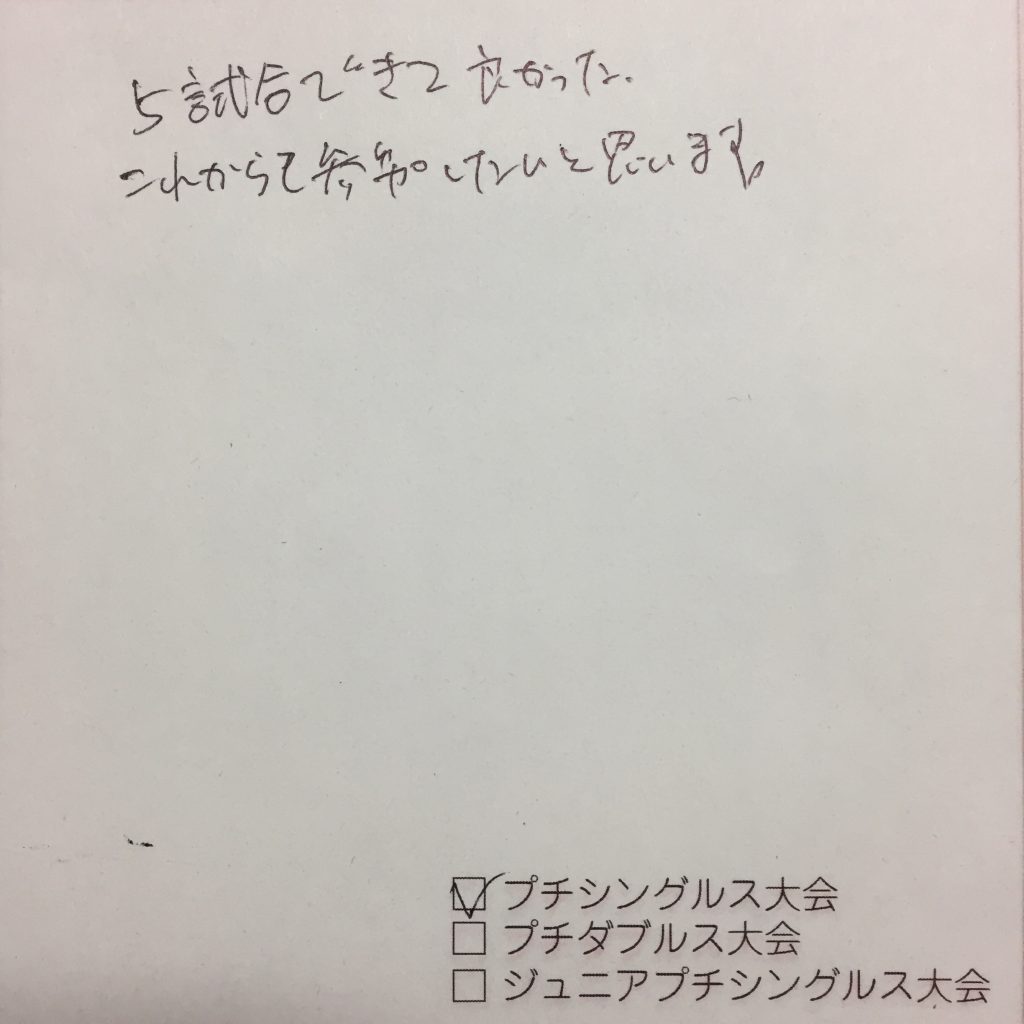 5試合できて良かった.
これからも参加したいと思います。
☑プチシングルス大会
□プチダブルス大会
□ジュニアプチシングルス大会